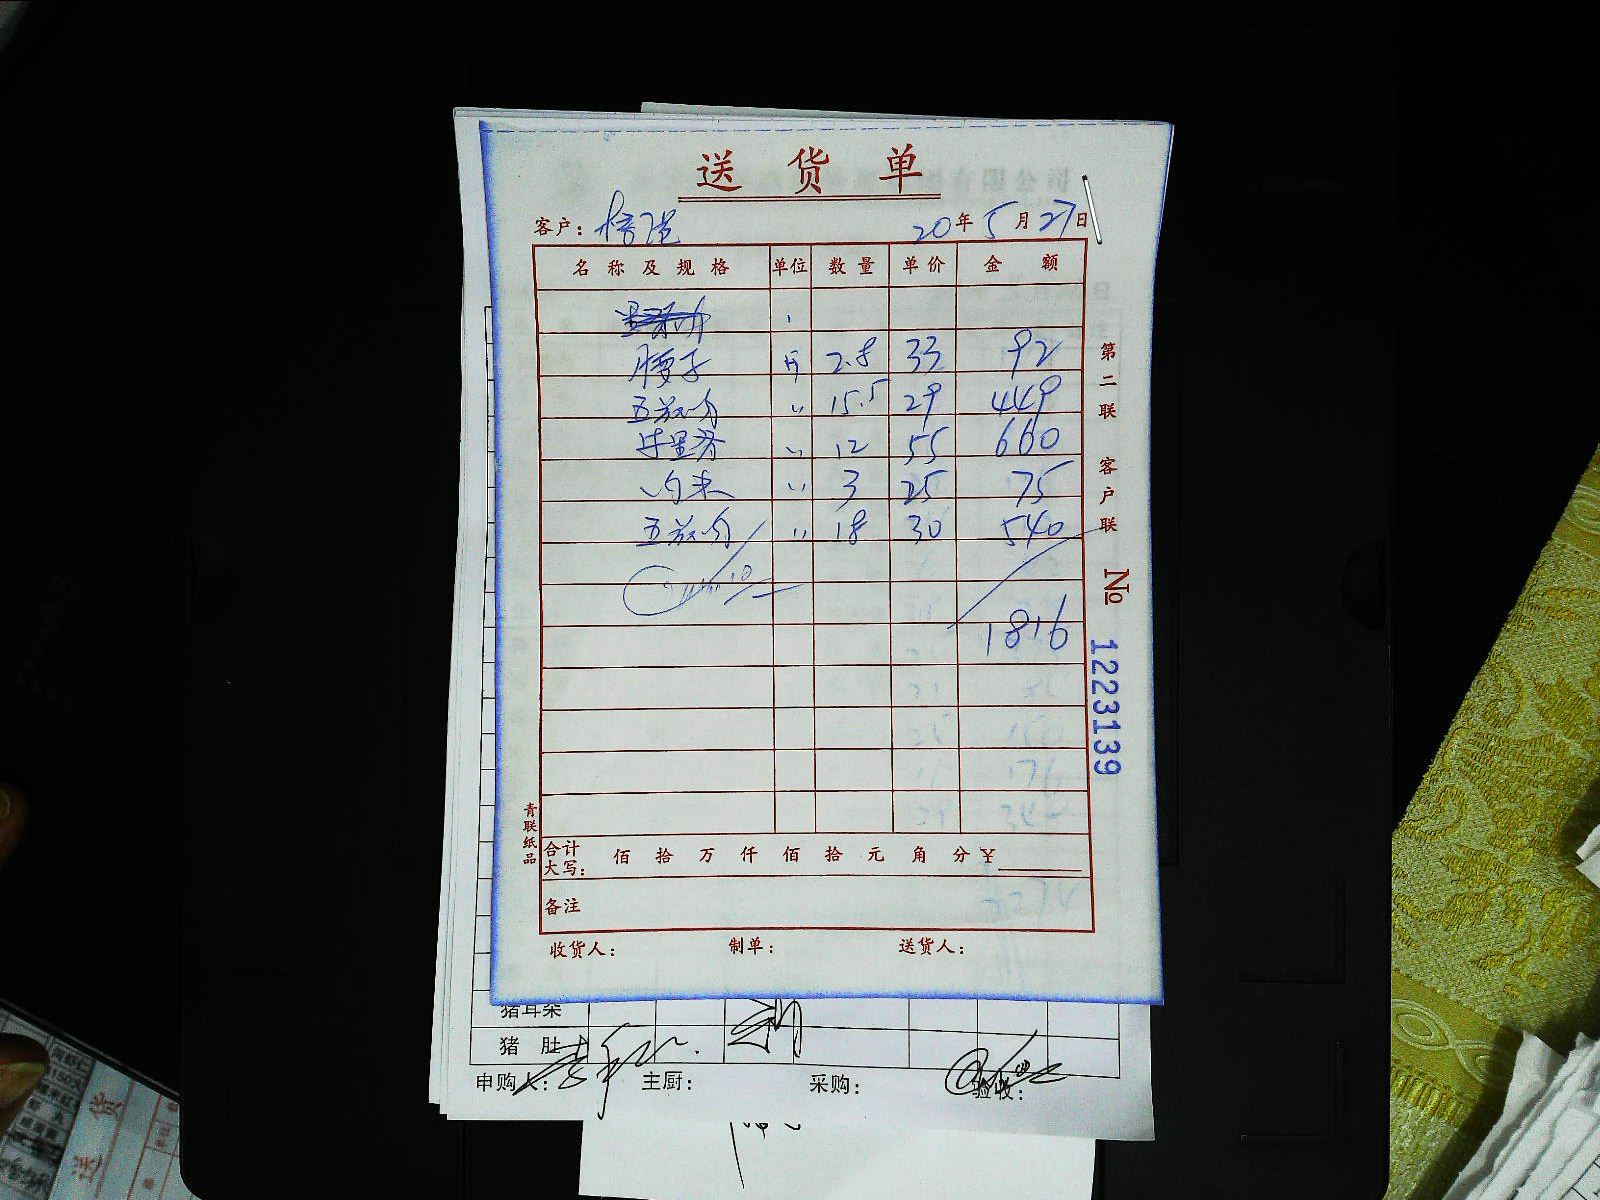 送货单
客户：
20年5月27日
名称及规格 单位 数量 单价 金额
腰子 斤 2.8 33 92
五花肉 〃 15.5 29 449
牛里脊 〃 12 55 660
肉末 〃 3 25 75
五花肉 〃 18 30 540
1816
合计大写： 佰 拾 万 仟 佰 拾 元 角 分 ¥
备注
收货人： 制单： 送货人：
第二联 客户联 № 1223139
青联纸品
猪耳朵
猪肚
申购人： 主厨： 采购： 验收：